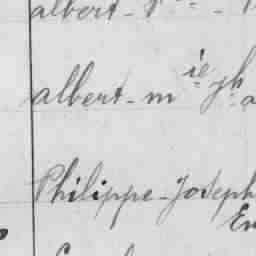 albert -
albert - m ie jh a
Philippe - Joseph
Em